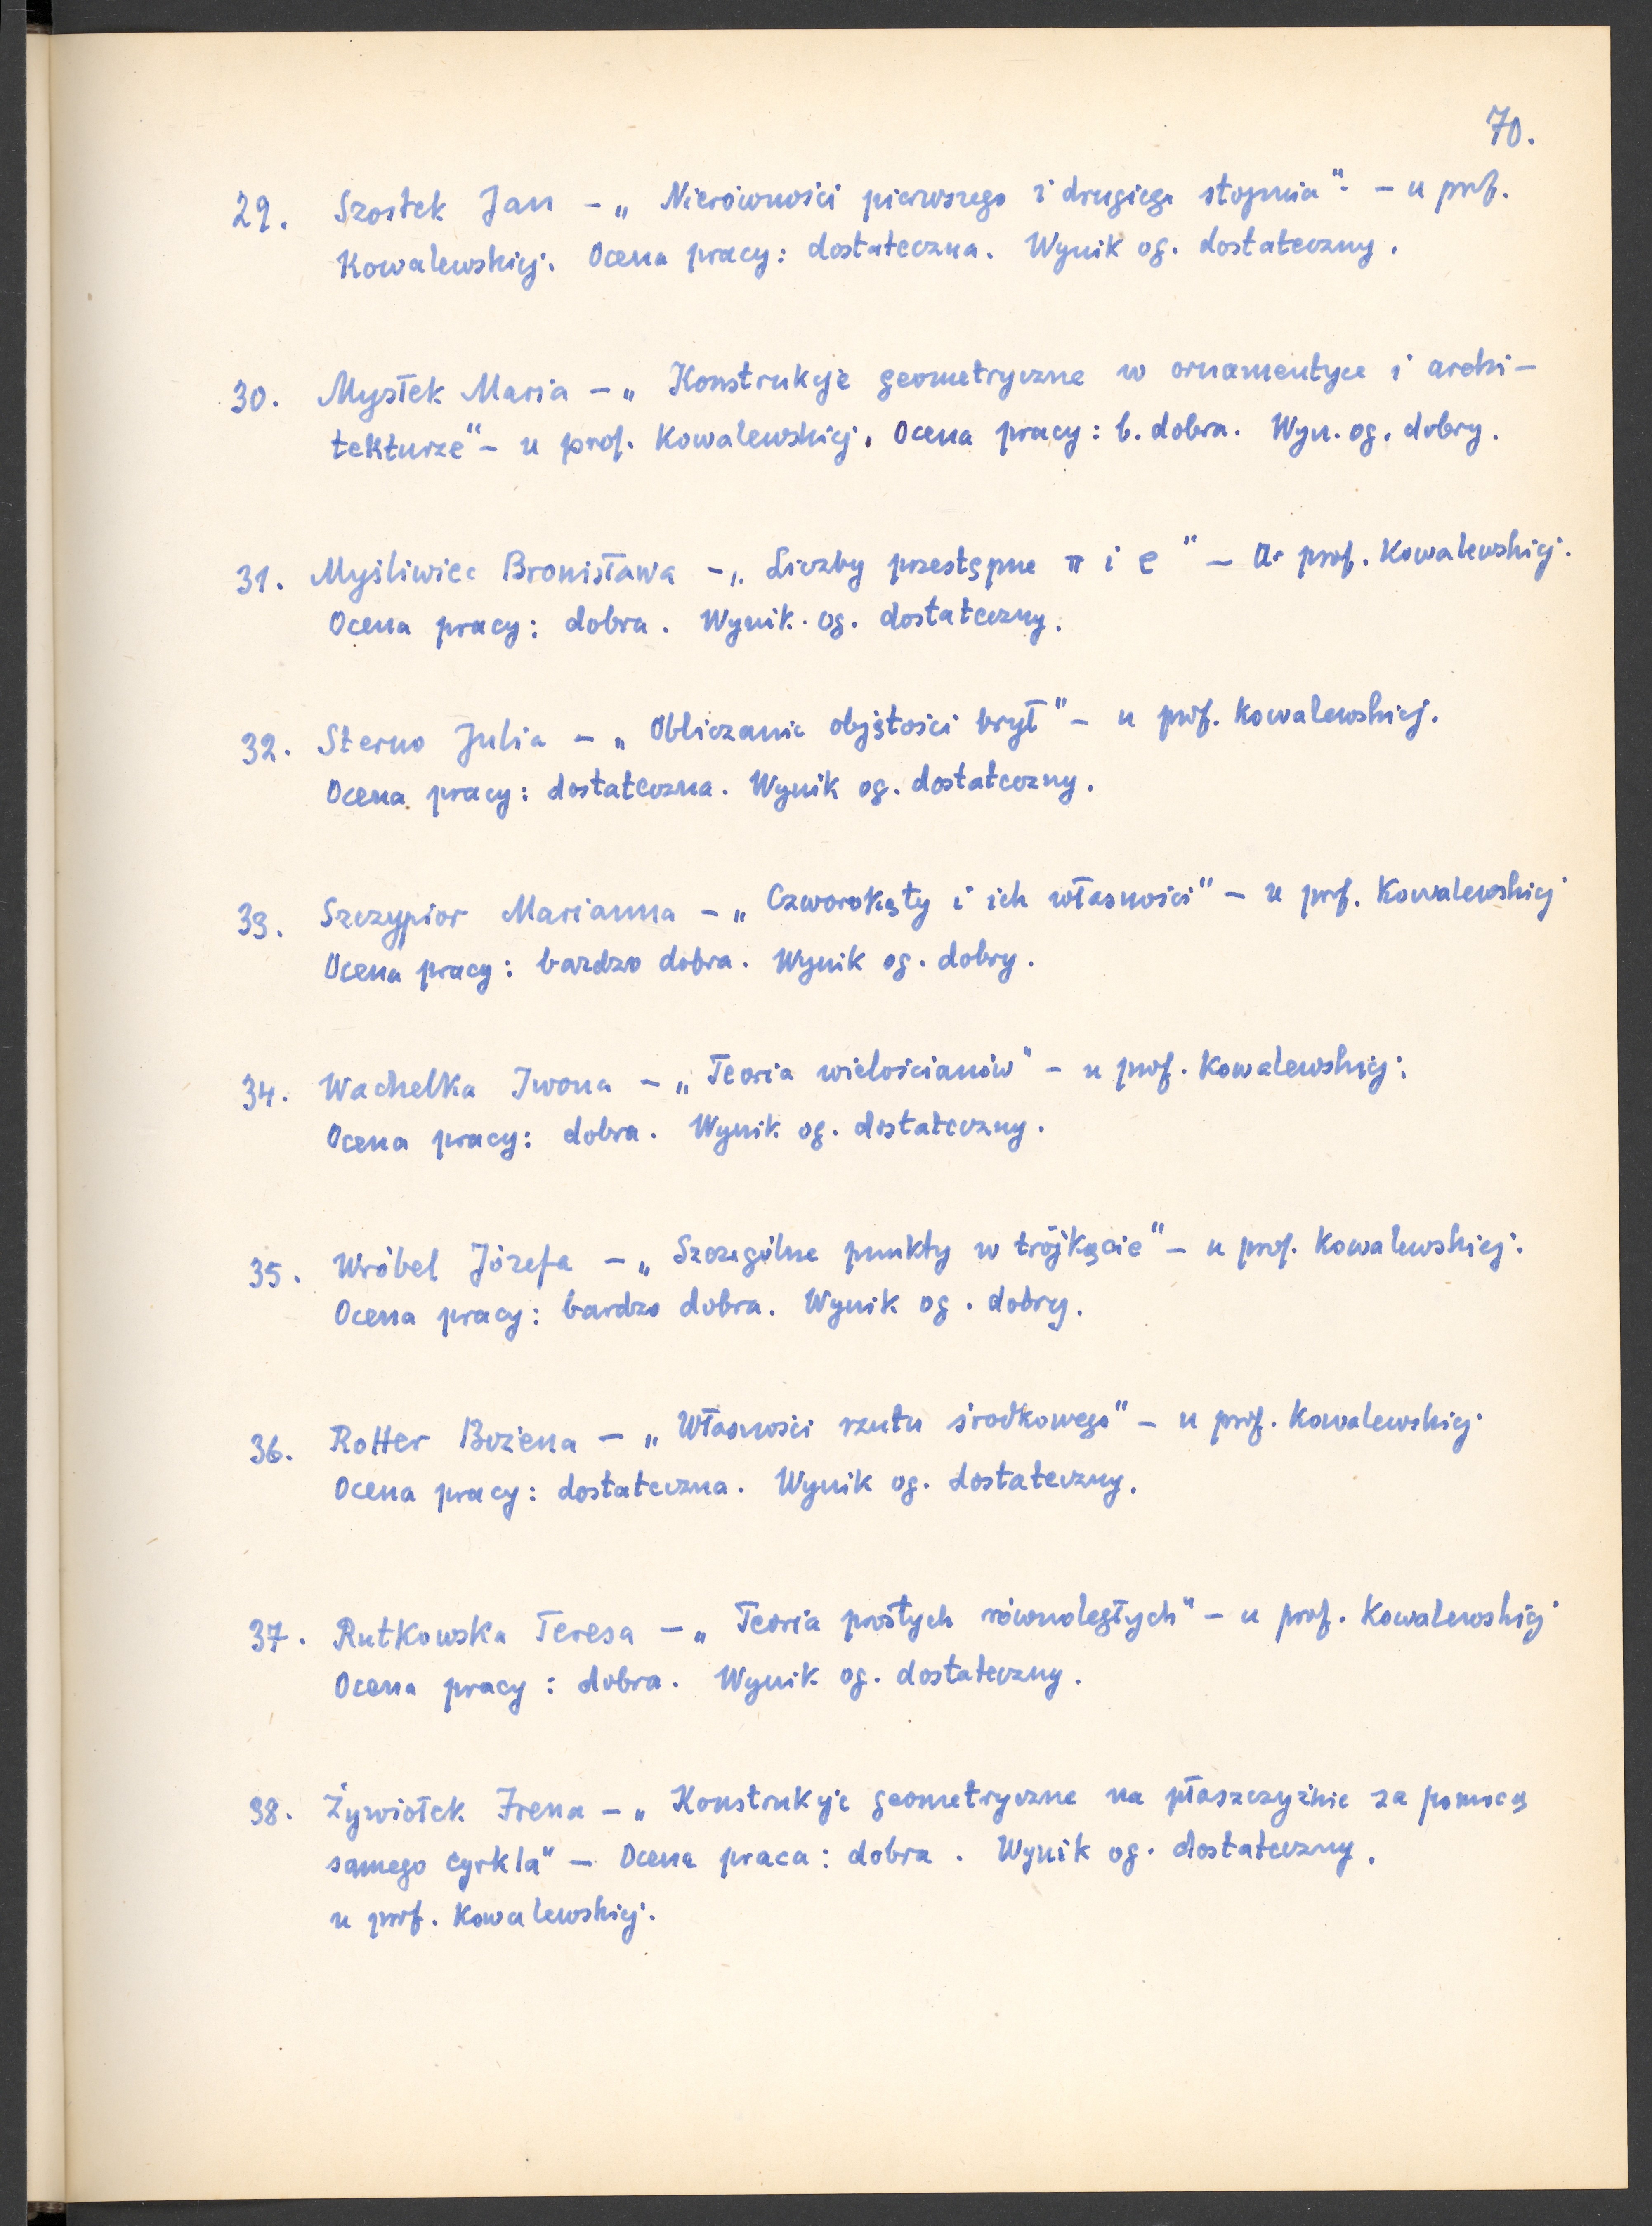 70.
29. Szostek Jan – „Nierówności pierwszego i drugiego stopnia" – u prof.
Kowalewskiej. Ocena pracy: dostateczna. Wynik og. dostateczny.
30. Mysłek Maria – „Konstrukcje geometryczne w ornamentyce i archi–
tekturze" – u prof. Kowalewskiej. Ocena pracy: b. dobra. Wyn. og. dobry.
31. Myśliwiec Bronisława – „Liczby przestępne π i e" – u prof. Kowalewskiej.
Ocena pracy: dobra. Wynik. og. dostateczny.
32. Sterno Julia – „Obliczanie objętości brył" – u prof. Kowalewskiej.
Ocena pracy: dostateczna. Wynik og. dostateczny.
33. Szczypior Marianna – „Czworokąty i ich własności" – u prof. Kowalewskiej
Ocena pracy: bardzo dobra. Wynik og. dobry.
34. Wachelka Iwona – „Teoria wielościanów" – u prof. Kowalewskiej.
Ocena pracy: dobra. Wynik og. dostateczny.
35. Wróbel Józefa – „Szczególne punkty w trójkącie" – u prof. Kowalewskiej.
Ocena pracy: bardzo dobra. Wynik og. dobry.
36. Rotter Bożena – „Własności rzutu środkowego" – u prof. Kowalewskiej
Ocena pracy: dostateczna. Wynik og. dostateczny.
37. Rutkowska Teresa – „Teoria prostych równoległych" – u prof. Kowalewskiej
Ocena pracy: dobra. Wynik og. dostateczny.
38. Żywiołek Irena – „Konstrukcje geometryczne na płaszczyźnie za pomocą
samego cyrkla" – Ocena praca: dobra. Wynik og. dostateczny.
u prof. Kowalewskiej.